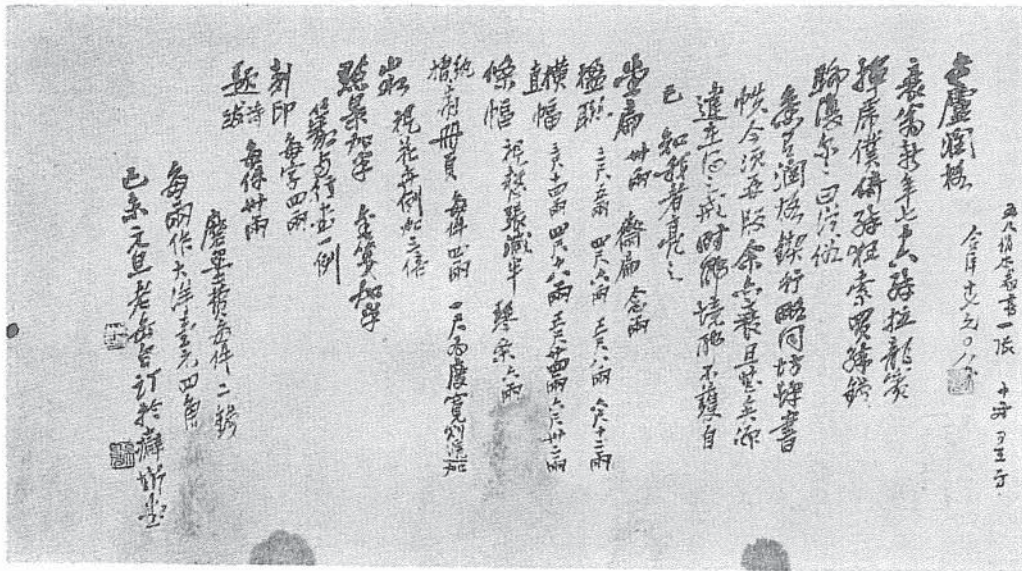 缶廬潤格
衰翁新年七十六醉拉龍賓
揮虎僕倚醉狂索買醉錢
聊復爾爾曰從俗
潤格鍥行略同坊肆書
帙今須再版余亦衰且甚矣深
違在得之戒時耶境耶不獲自
已 知我者亮之
堂扁 卅兩 齋扁 念兩
楹聯 三尺五兩 四尺六兩 五尺八兩 六尺十二兩
橫直幅 三尺十四兩 四尺十八兩 五尺廿四兩 六尺卅二兩
條幅 視整張減半 琴條六兩
紈摺扇冊頁 每件四兩 一尺為度寬則遞加
山水 視花卉例加三倍
點景加半 金箋加半
篆與行書一例
刻印 每字四兩
題詩跋 每件卅兩
磨墨費每件二錢
每兩作大洋壹元四角
己未元旦老缶自訂於癖斯堂